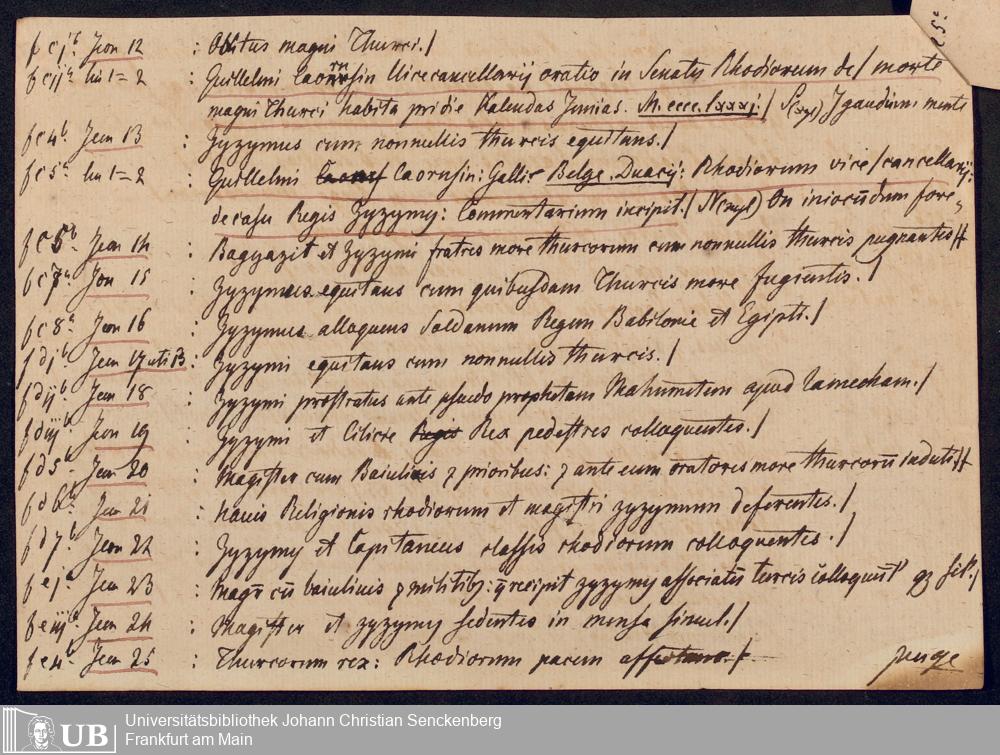 f c j.b Jcon 12 : Obitus magni Thurci./
f c ij.a lin 1 = 2 : Guillelmi Caorursin Vicecancellarij oratio in Senatu Rhodiorum de/ morte
magni Thurci habita pridie Kalendas Junias. M.cccc.lxxxj./ gaudium mente
f c 4.b Jcon 13 : Zyzymus cum nonnullis thurcis equitans./
f c 5.a lin 1 = 2 : Guillelmi Caorusin: Gallie Belge. Duacij: Rhodiorum vice/cancellarij:
de casu Regis Zyzymy: Commentarium incipit./ On iniocūdum fore
f c 6.b Jcon 14 : Bagyazit et Zyzymi fratres more thurcorum cum nonnullis thurcis pugnantes//
f c 7.a Jcon 15 : Zyzymus equitans cum quibusdam Thurcis more fugientis./
f c 8.a Jcon 16 : Zyzymus alloquens Soldanum Regem Babilonie et Egipti./
f d j.b Jcon 17 uti 13 : Zyzymi equitans cum nonnullis thurcis./
f d ij.b Jcon 18 : Zyzymi prostratus ante pseudo prophetam Mahumetem apud Lamecham./
f d iij.b Jcon 19 : Zyzymi et Cilicie Rex pedestres colloquentes./
f d 5.b Jcon 20 : Magister cum Baiulinis et prioribus: et ante eum oratores more thurcorū induti//
f d 6.b Jcon 21 : Nauis Religionis rhodiorum et magistri zyzymum deferentes./
f d 7.b Jcon 22 : Zyzymy et Capitaneus classis rhodiorum colloquentes./
f e j.a Jcon 23 : Magr̄ cū baiuliuis et militibz: recipit zyzymy associatū turcis colloquūt'
f e iij.a Jcon 24 : Magister et zyzymy sedentes in mensa simul./
f e 4.b Jcon 25 : Thurcorum rex: Rhodiorum pacem
c 5.a
UB
Universitätsbibliothek Johann Christian Senckenberg
Frankfurt am Main